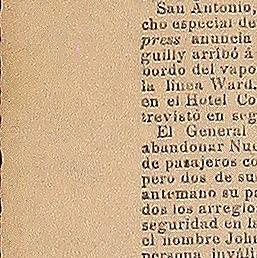 San Antonio,
cho especial de
press anuncia
guilly arribó á
bordo del vapo
la línea Ward.
en el Hotel Co
trevistó en seg
El General
abandonar Nue
de pasajeros co
pero dos de su
antemano su pa
dos los arreglo
seguridad en la
el nombre John
persona inváli